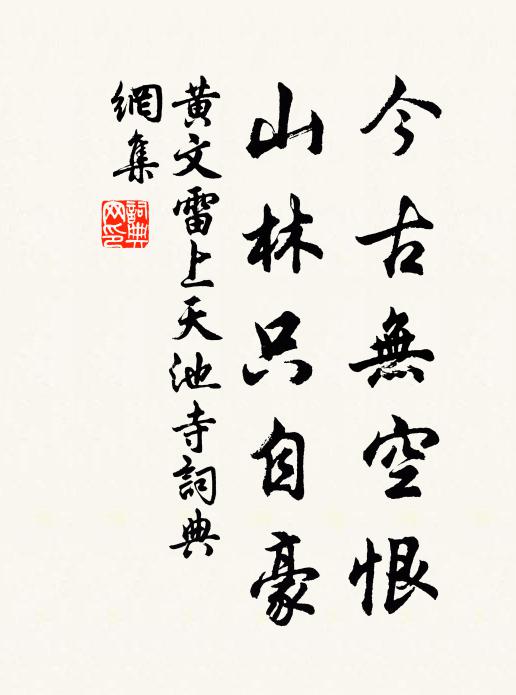 今古無空恨
山林只自豪
黄文雷上天池寺詞典
網集
詞典網印